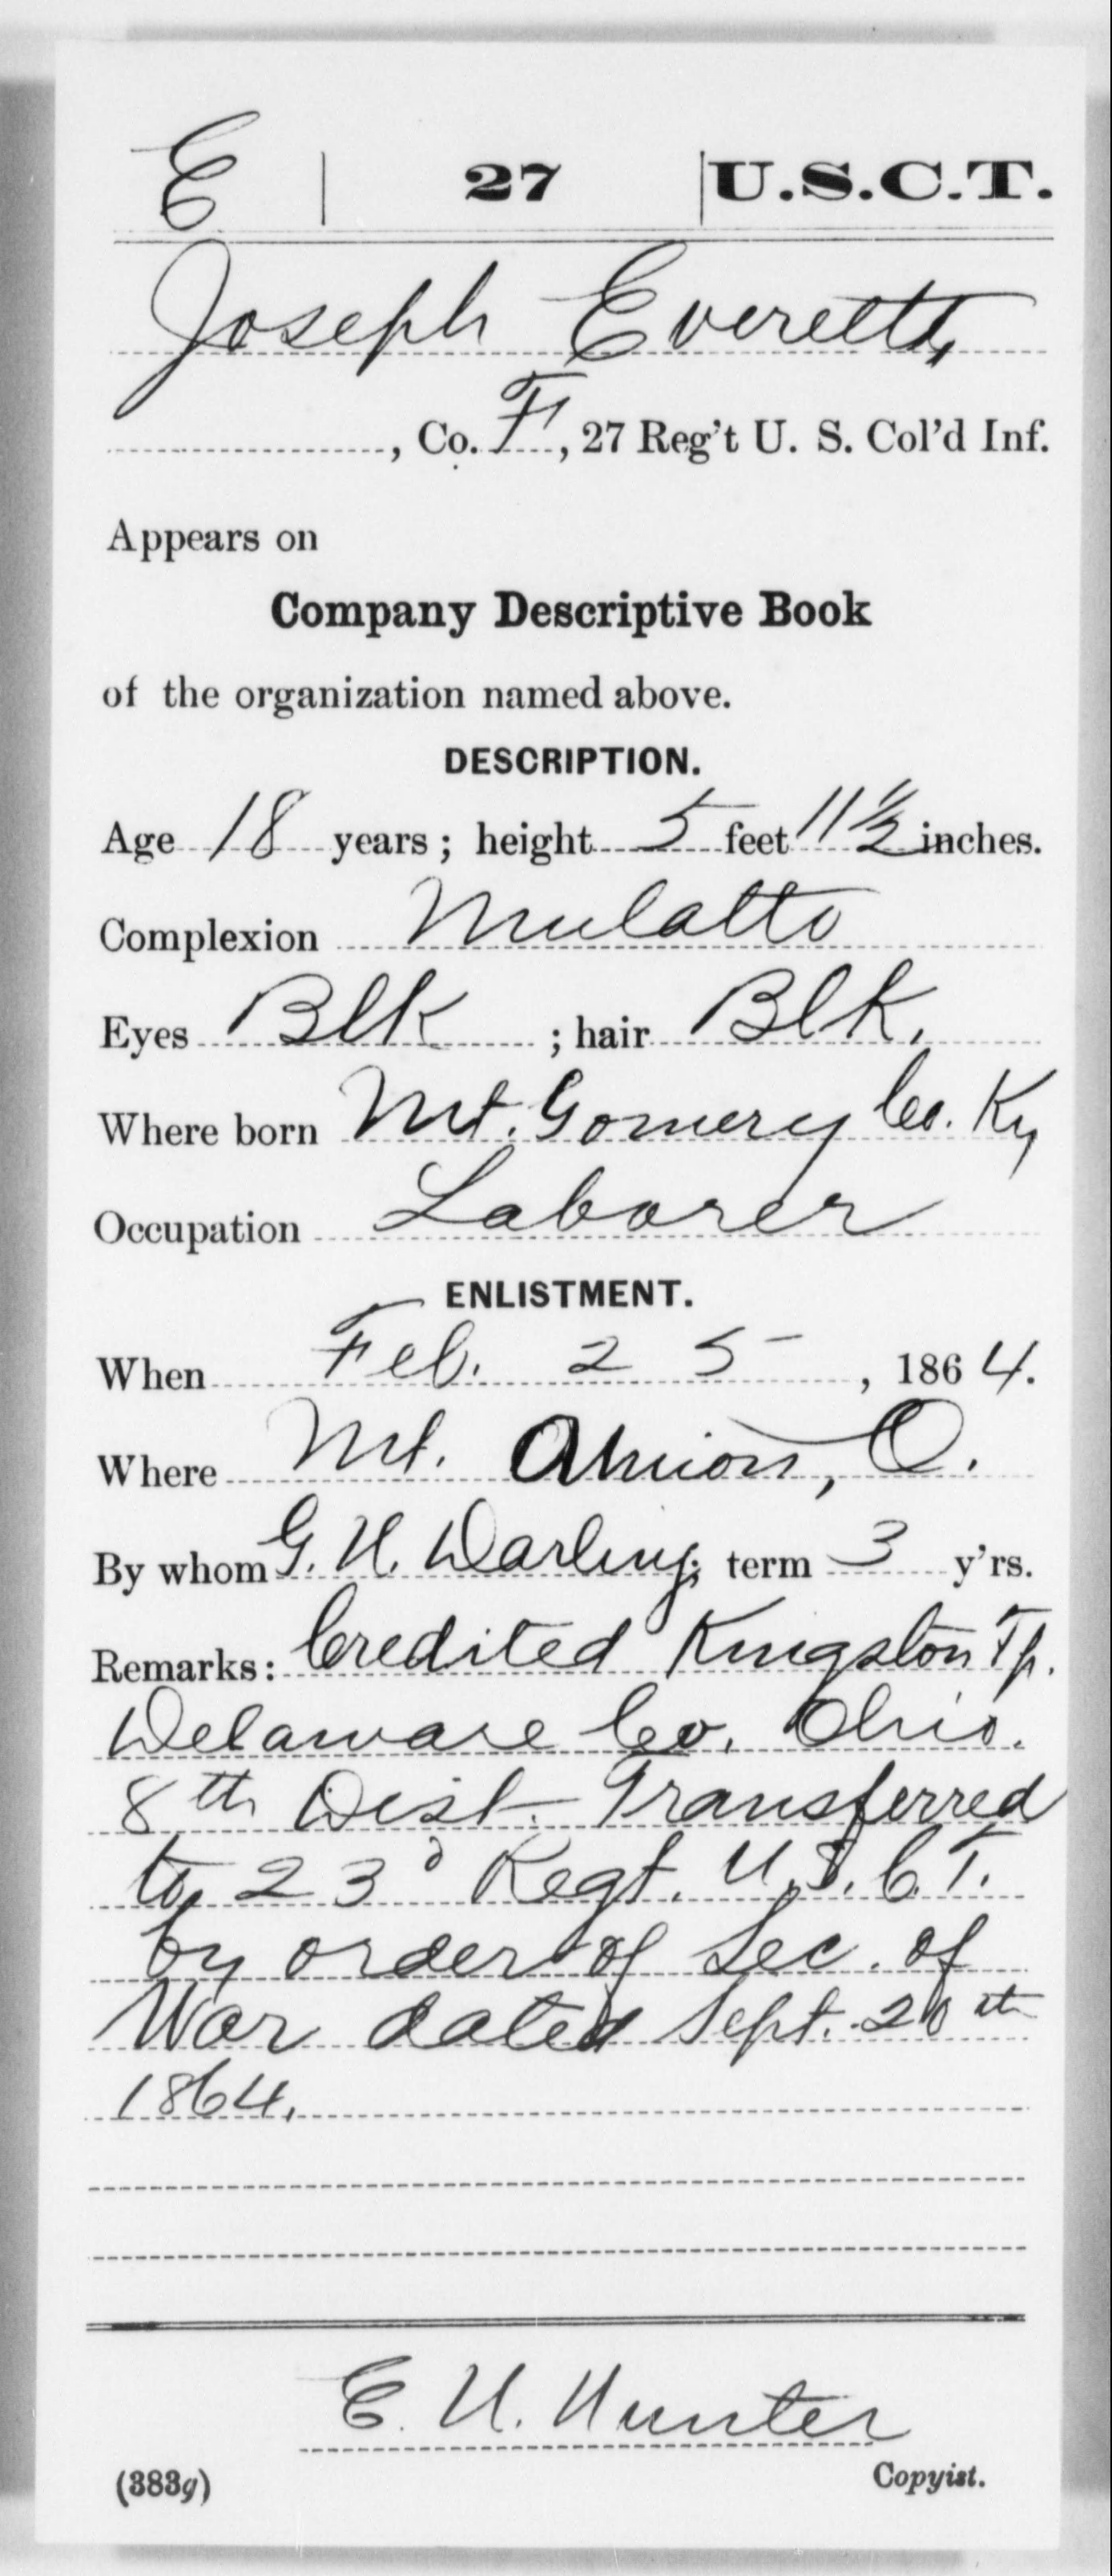 E | 27 | U.S.C.T.
Joseph Everett,
, Co. F, 27 Reg't U. S. Col'd Inf.
Appears on
Company Descriptive Book
of the organization named above.
DESCRIPTION.
Age 18 years; height 5 feet 11 1/2 inches.
Complexion Mulatto
Eyes Blk ; hair Blk.
Where born Mt. Gomery Co. Ky
Occupation Laborer
ENLISTMENT.
When Feb. 25, 1864.
Where Mt. , O.
By whom G. H. Darling; term 3 y'rs.
Remarks: Credited Kingston Tp.
Delaware Co. Ohio.
8th Dist. Transferred
to 23d Regt. U.S.C.T.
by order of Sec. of
War dated Sept.
1864.
E. H. Hunter
(383g) Copyist.